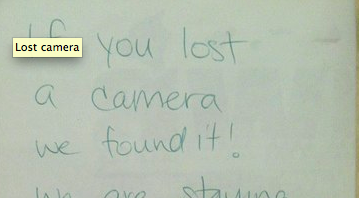 If you lost
Lost camera
a camera
we found it!
we are staying